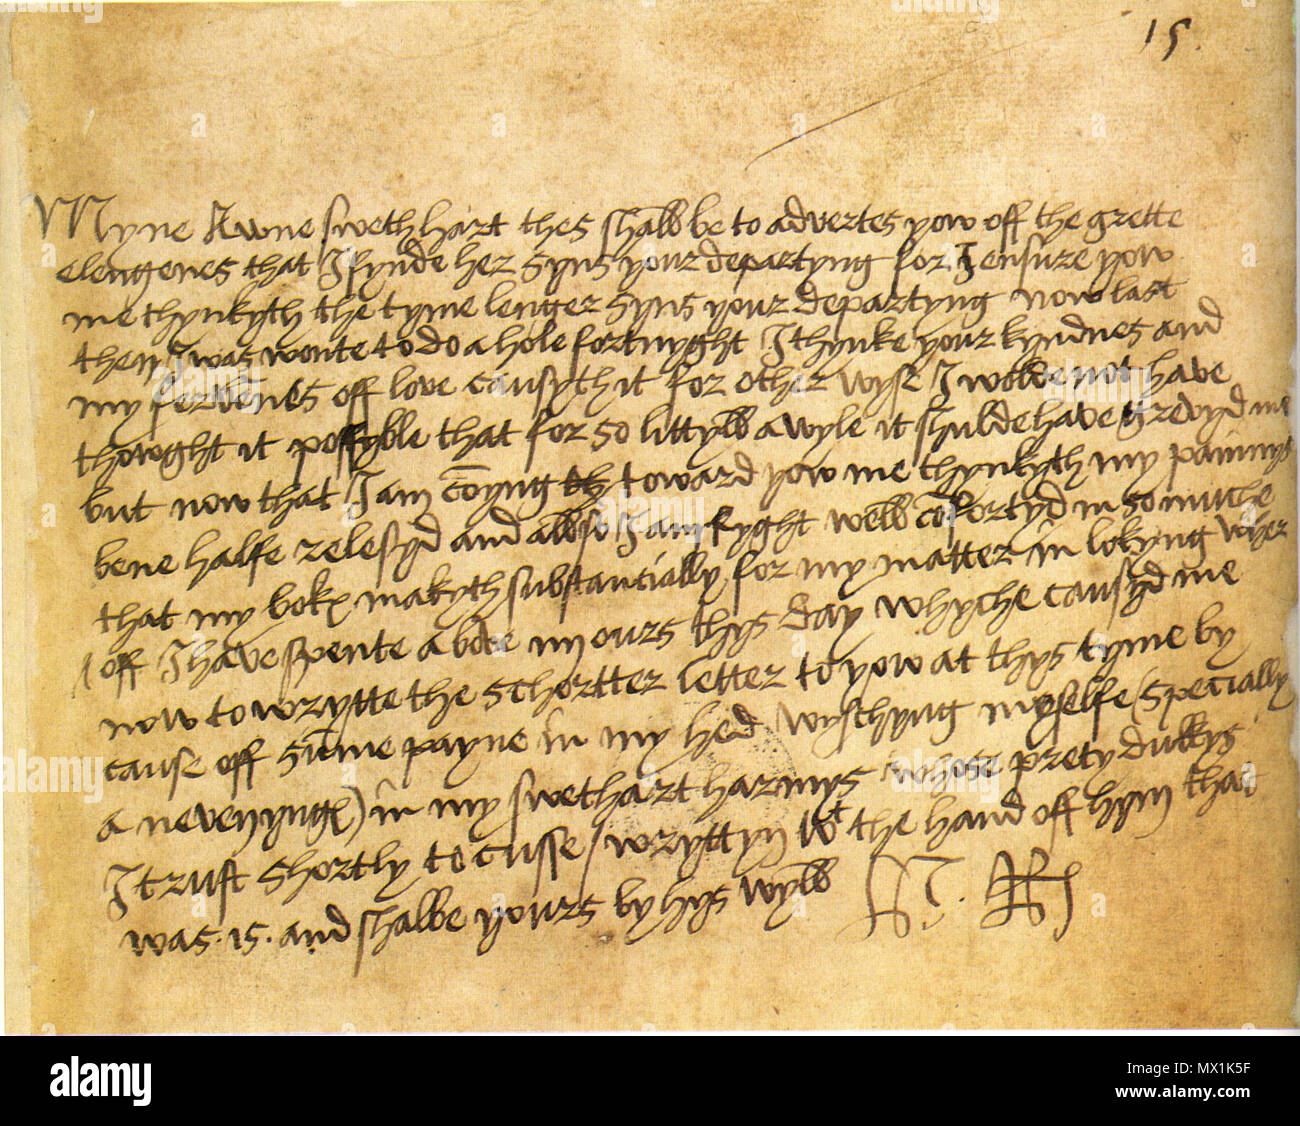 15.
Myne Awne swethhart thes shall be to advertes yow off the grette
elengenes that I fynde her syns your departyng for I ensure yow
me thynkyth the tyme lenger syns your departyng now last
then I was wonte to do a hole fortnyght I thynke your kyndnes and
my fervens off love causyth it for other wyse I wolde not have
thowght it possyble that for so littyll a wyle it shulde have grevyd me
but now that I am comyng toward yow me thynkyth my painnys
bene halfe relesyd and allso I am ryght well comfortyd in so muche
that my bokx makyth substantially for my matter in lokyng wher
off I have spente above iiij ours thys day whyche causyd me
now to wrytte the schortter letter to yow at thys tyme by
cause off summe payne in my hed wyschyng myselfe (specially
a nevenyng) in my swethart harmys whose prety dukkys
I trust shortly to cusse / wryttyn wt the hand off hym that
was .is. and shalbe yours by hys wyll H. Rx
alamy stock photo
alamy
Image ID: MX1K5F
www.alamy.com